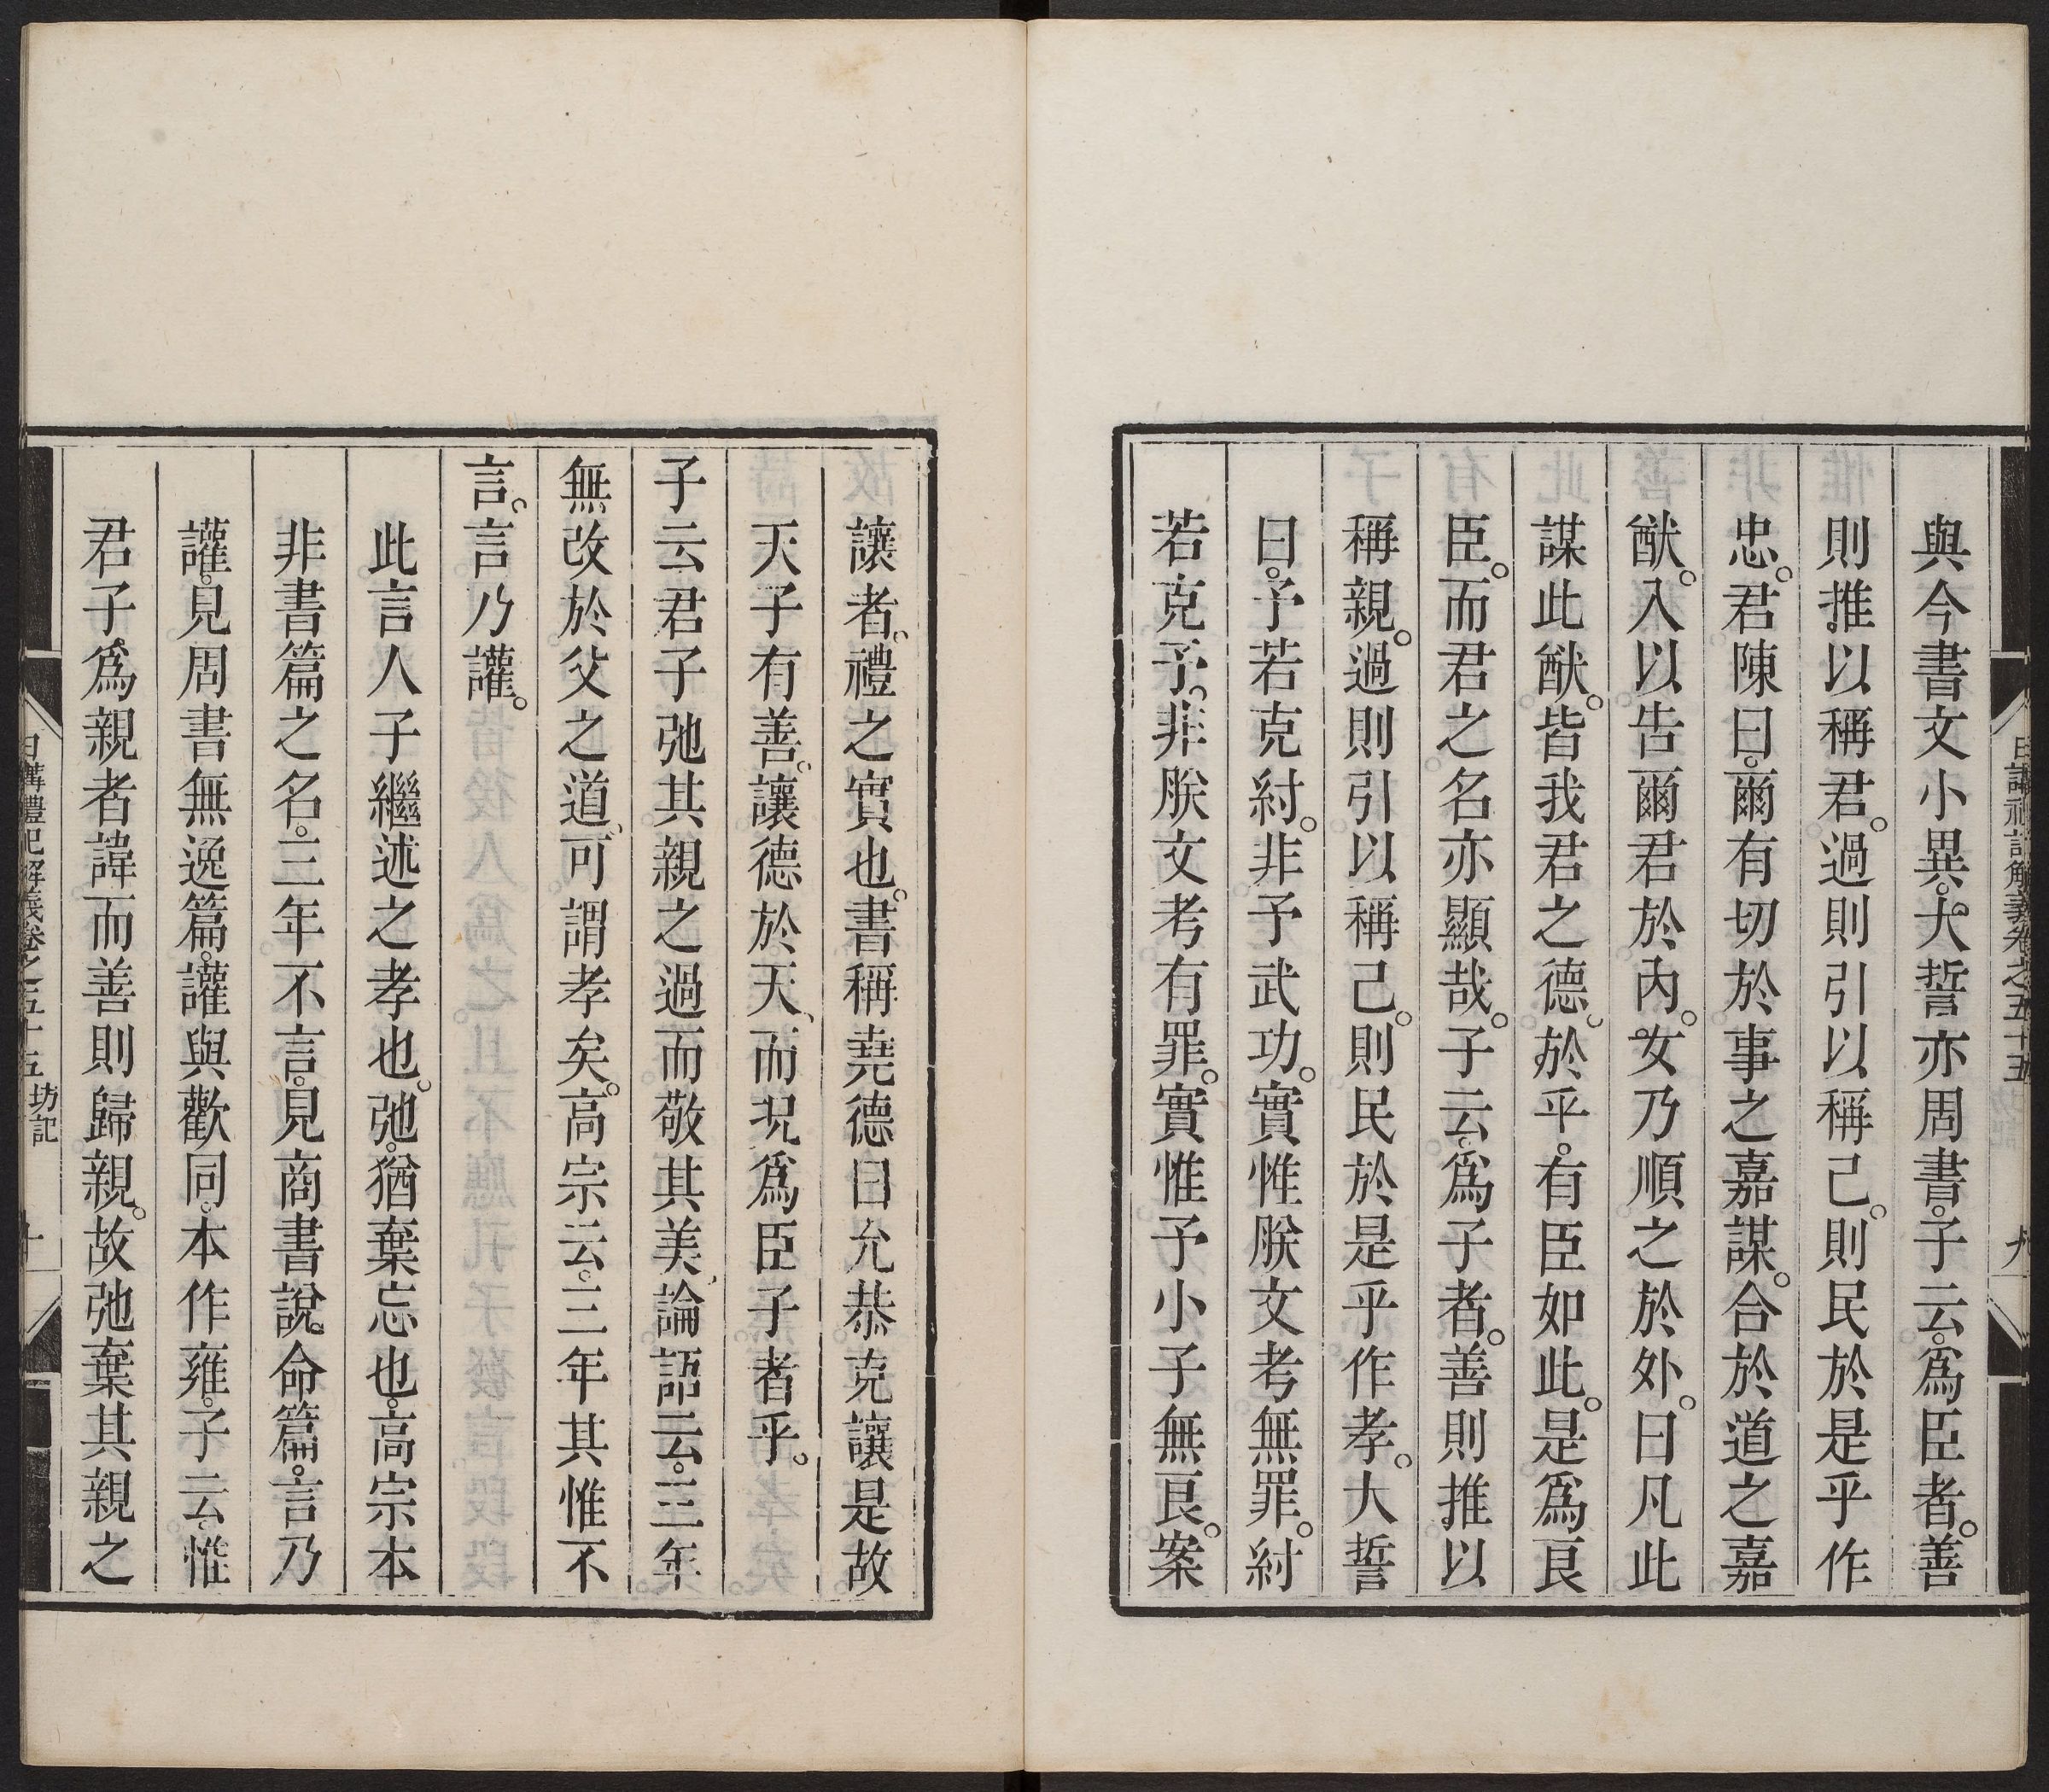 日講禮記解義卷之五十五 坊記 九
與今書文小異。大誓亦周書。子云。爲臣者。善
則推以稱君。過則引以稱己。則民於是乎作
忠。君陳曰。爾有切於事之嘉謀。合於道之嘉
猷。入以告爾君於內。女乃順之於外。曰凡此
謀此猷。皆我君之德。於乎。有臣如此。是爲良
臣。而君之名亦顯哉。子云。爲子者。善則推以
稱親。過則引以稱己。則民於是乎作孝。大誓
曰。予若克紂。非予武功。實惟朕文考無罪。紂
若克予。非朕文考有罪。實惟予小子無良。案
讓者。禮之實也。書稱堯德曰允恭克讓是故
天子有善。讓德於天、而况爲臣子者乎。
子云君子弛其親之過而敬其美、論語云。三年
無改於父之道、可謂孝矣。高宗云。三年其惟不
言。言乃讙。
此言人子繼述之孝也。弛。猶棄忘也。高宗本
非書篇之名。三年不言。見商書說命篇。言乃
讙。見周書無逸篇。讙與歡同。本作雍。子云。惟
君子爲親者諱而善則歸親。故弛棄其親之
日講禮記解義卷之五十五 坊記 十